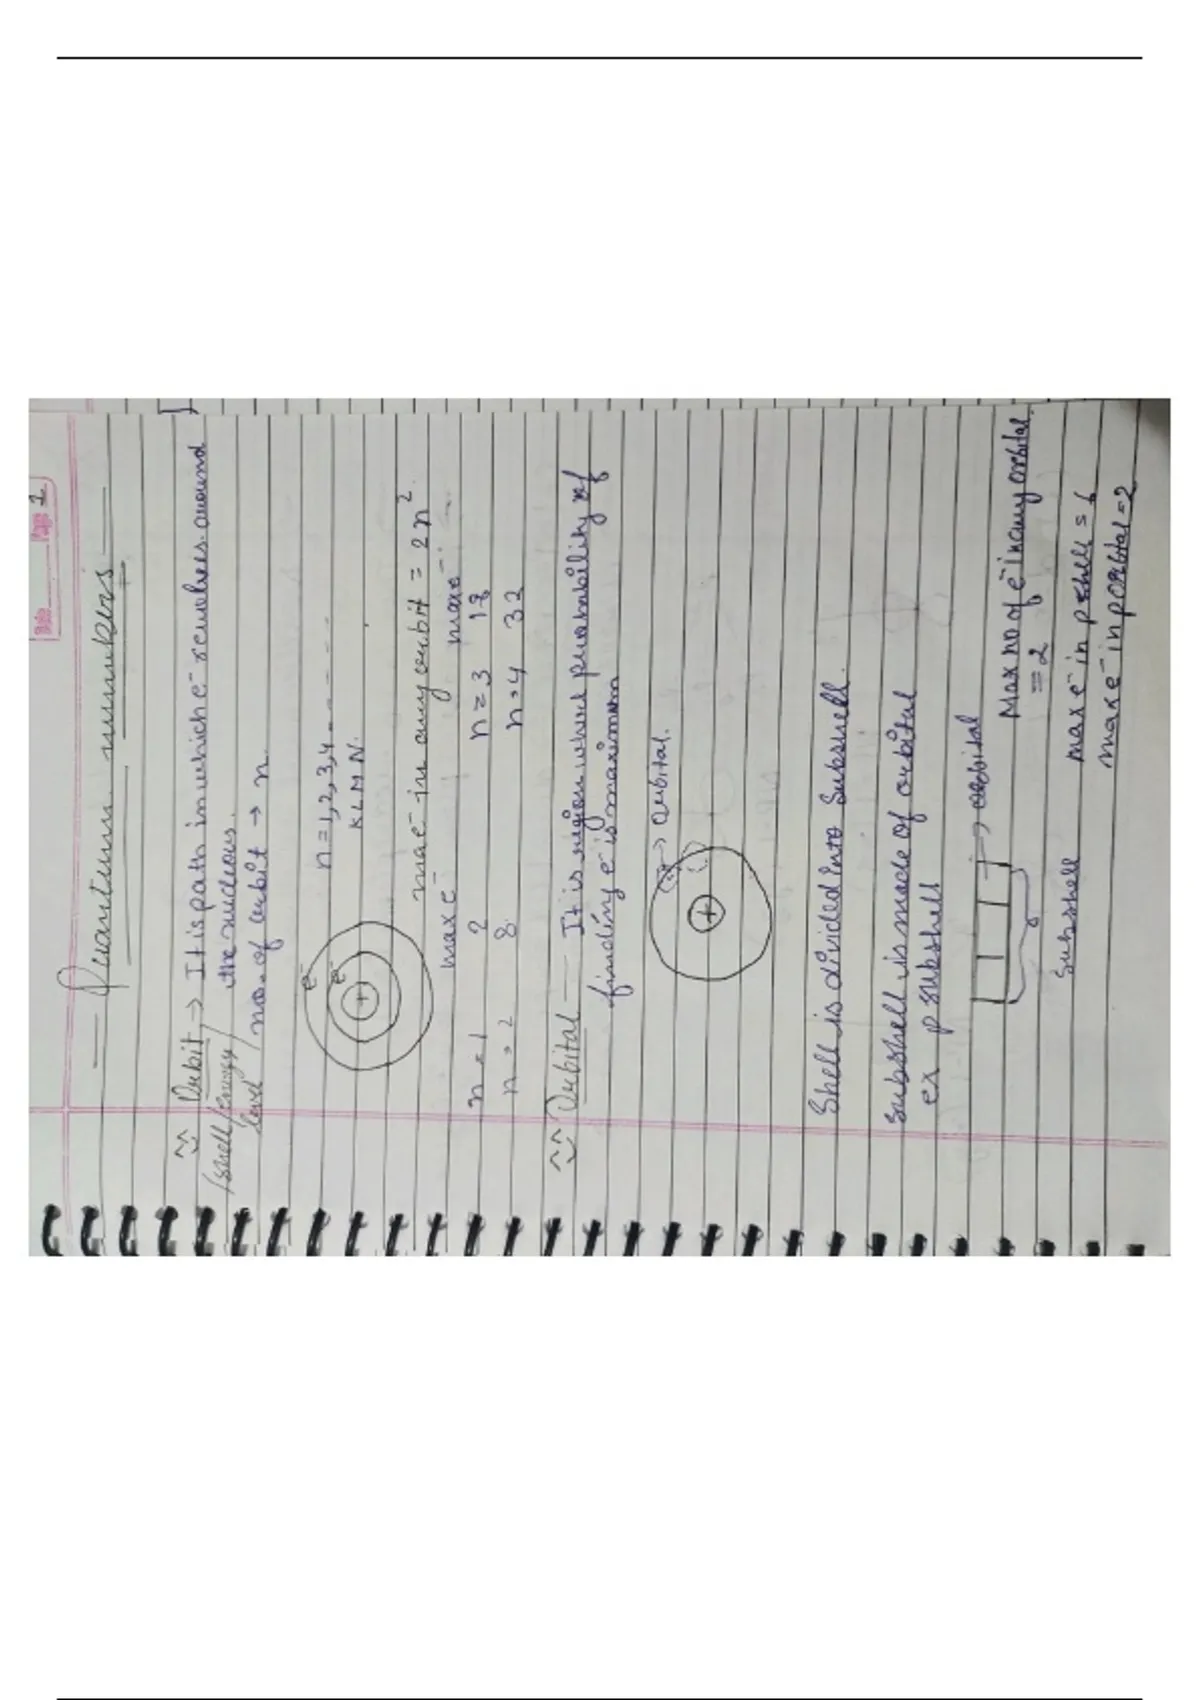 Date Page 1
Quantum numbers
Orbit → It is path in which e⁻ revolves around
/shell/energy the nucleous.
level / no. of orbit → n
n = 1, 2, 3, 4 - - - - -
K L M N.
e⁻
e⁻
+
max e⁻ in any orbit = 2n².
max e⁻ max e⁻
n = 1 2 n = 3 18
n = 2 8 n = 4 32
Orbital — It is region where probability of
finding e⁻ is maximum
→ orbital.
+
Shell is divided into Subshell.
Subshell is made of orbital
ex p subshell
→ orbital
Max no of e⁻ in any orbital.
= 2
Subshell
max e⁻ in p shell = 6
max e⁻ in p orbital = 2